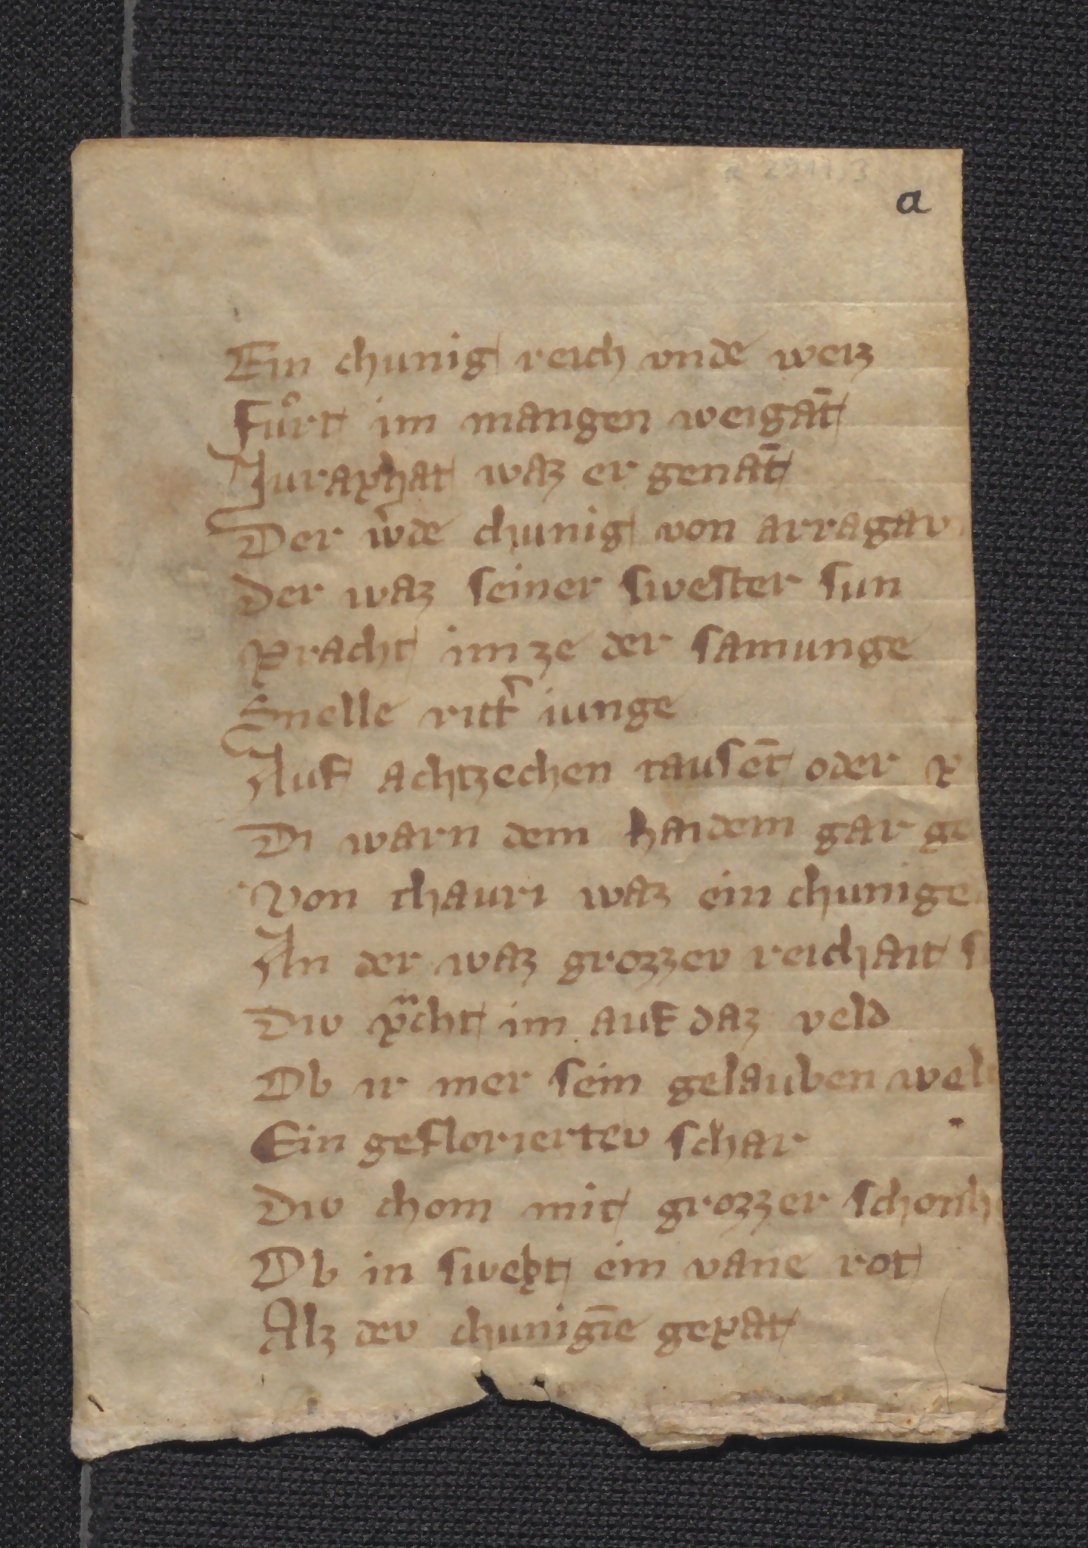 a
Ein chunig reich vnde weiz
Fuͦrt im mangen weigāt
Juraphat waz er genāt
Der w̓de chunig von arragav
Der waz seiner swester sun
Pracht im ze der samunge
Snelle ritt̓ iunge
Auf achtzechen tausēt oder p
Di warn dem haidem gar ge
Von thauri waz ein chunige
An der waz grozzev reichait s
Div pͣcht im auf daz veld
Ob ir mer sein gelauben welt
Ein gefloriertev schar
Div chom mit grozzer schonh
Ob in swebt ein vane rot
Alz dev chunigīe gepat